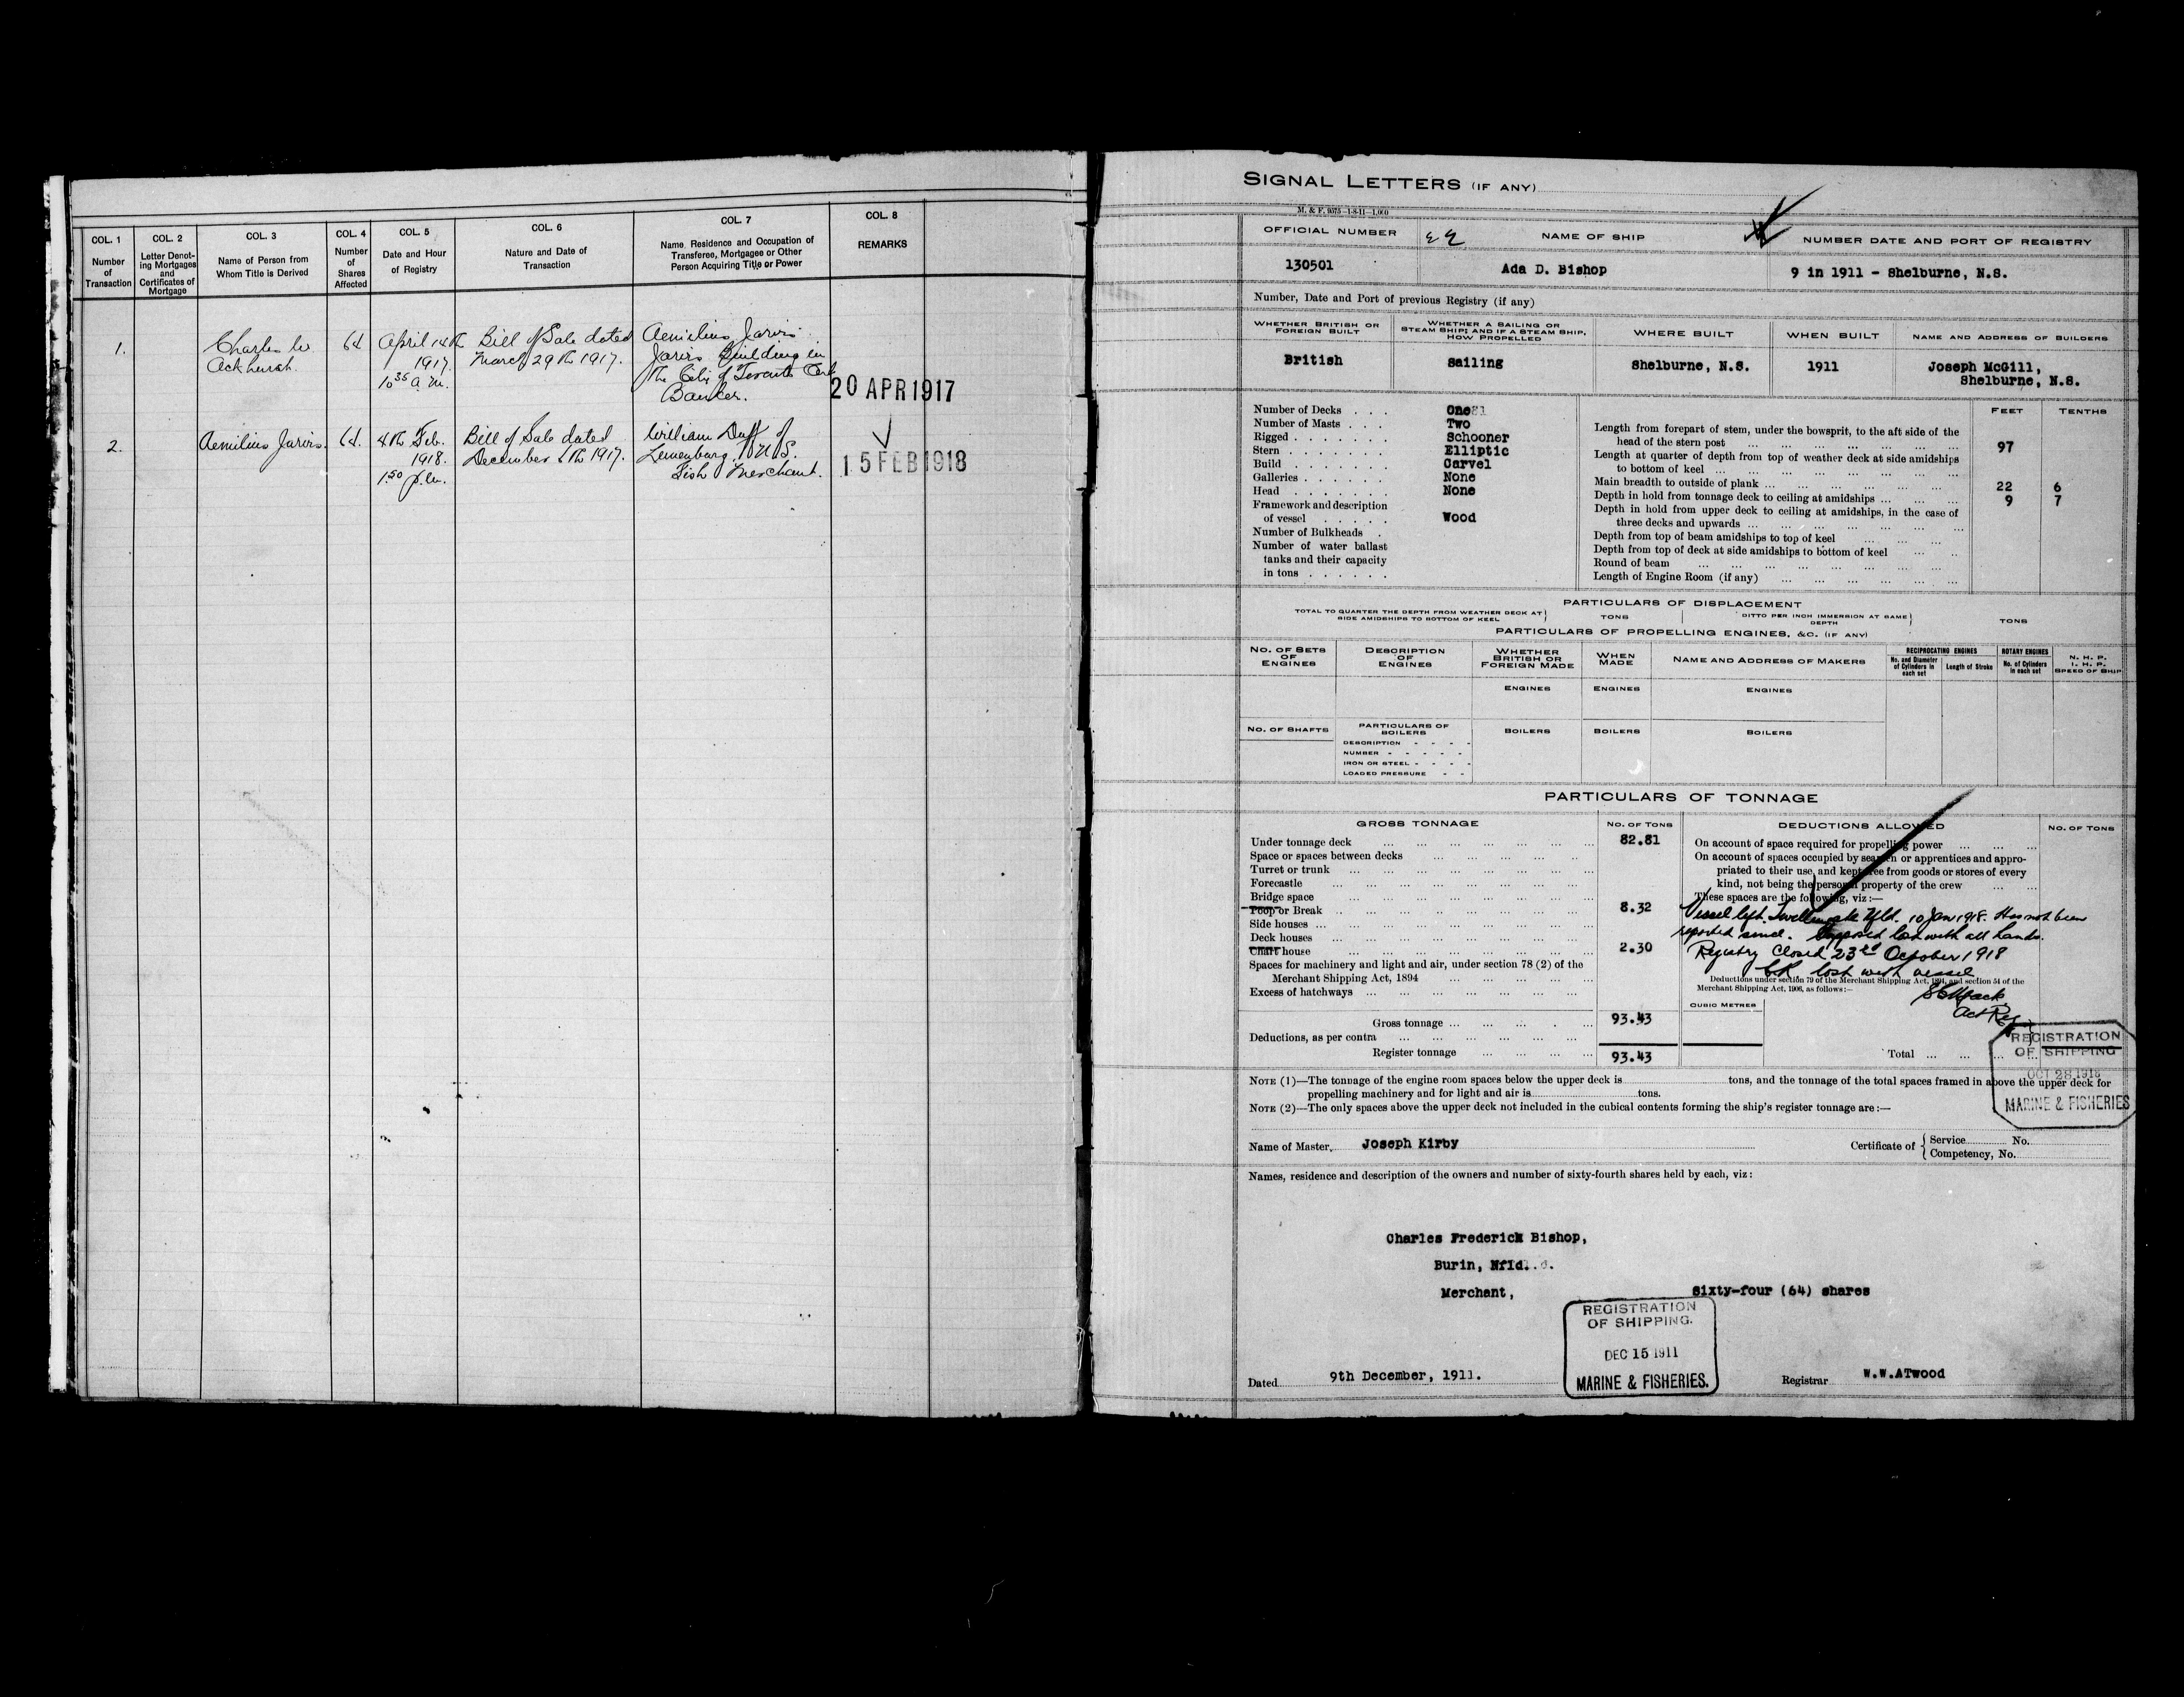 COL. 1
Number
of
Transaction
COL. 2
Letter Denot-
ing Mortgages
and
Certificates of
Mortgage
COL. 3
Name of Person from
Whom Title is Derived
COL. 4
Number
of
Shares
Affected
COL. 5
Date and Hour
of Registry
COL. 6
Nature and Date of
Transaction
COL. 7
Name, Residence and Occupation of
Transferee, Mortgagee or Other
Person Acquiring Title or Power
COL. 8
REMARKS
1.
Charles W
Ackhurst.
64
April 14th
1917.
10 35 a.m.
Bill of Sale dated
March 29th 1917.
Aemilius Jarvis
Jarvis Building in
the City of Toronto Ont
Banker.
20 APR 1917
2.
Aemilius Jarvis.
64.
4th Feb.
1918.
1.50 p.m.
Bill of Sale dated
December 6th 1917.
William Duff of
Lunenburg, N.S.
Fish Merchant.
15 FEB 1918
SIGNAL LETTERS (IF ANY)
M. & F. 9575-1-8-11-1,000
OFFICIAL NUMBER
NAME OF SHIP
NUMBER DATE AND PORT OF REGISTRY
130501
Ada D. Bishop
9 in 1911 - Shelburne, N.S.
Number, Date and Port of previous Registry (if any)
WHETHER BRITISH OR
FOREIGN BUILT
WHETHER A SAILING OR
STEAM SHIP; AND IF A STEAM SHIP,
HOW PROPELLED
WHERE BUILT
WHEN BUILT
NAME AND ADDRESS OF BUILDERS
British
Sailing
Shelburne, N.S.
1911
Joseph McGill,
Shelburne, N.S.
Number of Decks . . . One
Number of Masts . . . Two
Rigged . . . . . . . Schooner
Stern . . . . . . . Elliptic
Build . . . . . . . Carvel
Galleries . . . . . . None
Head . . . . . . . None
Framework and description
of vessel . . . . . Wood
Number of Bulkheads .
Number of water ballast
tanks and their capacity
in tons . . . . . .
FEET TENTHS
Length from forepart of stem, under the bowsprit, to the aft side of the
head of the stern post ... 97
Length at quarter of depth from top of weather deck at side amidships
to bottom of keel ...
Main breadth to outside of plank ... 22 6
Depth in hold from tonnage deck to ceiling at amidships ... 9 7
Depth in hold from upper deck to ceiling at amidships, in the case of
three decks and upwards ...
Depth from top of beam amidships to top of keel ...
Depth from top of deck at side amidships to bottom of keel ...
Round of beam ...
Length of Engine Room (if any) ...
PARTICULARS OF DISPLACEMENT
TOTAL TO QUARTER THE DEPTH FROM WEATHER DECK AT
SIDE AMIDSHIPS TO BOTTOM OF KEEL
TONS
DITTO PER INCH IMMERSION AT SAME
DEPTH
TONS
PARTICULARS OF PROPELLING ENGINES, &C. (IF ANY)
NO. OF SETS
OF
ENGINES
DESCRIPTION
OF
ENGINES
WHETHER
BRITISH OR
FOREIGN MADE
WHEN
MADE
NAME AND ADDRESS OF MAKERS
RECIPROCATING ENGINES
No. and Diameter
of Cylinders in
each set
Length of Stroke
ROTARY ENGINES
No. of Cylinders
in each set
N. H. P.
I. H. P.
SPEED OF SHIP
ENGINES
ENGINES
ENGINES
NO. OF SHAFTS
PARTICULARS OF
BOILERS
DESCRIPTION - - - -
NUMBER - - - - -
IRON OR STEEL - - - -
LOADED PRESSURE - -
BOILERS
BOILERS
BOILERS
PARTICULARS OF TONNAGE
GROSS TONNAGE
NO. OF TONS
DEDUCTIONS ALLOWED
NO. OF TONS
Under tonnage deck ... 82.81
Space or spaces between decks ...
Turret or trunk ...
Forecastle ...
Bridge space ...
Poop or Break ... 8.32
Side houses ...
Deck houses ...
Chart house ... 2.30
Spaces for machinery and light and air, under section 78 (2) of the
Merchant Shipping Act, 1894 ...
Excess of hatchways ...
Gross tonnage ... 93.43
Deductions, as per contra ...
Register tonnage ... 93.43
On account of space required for propelling power ...
On account of spaces occupied by seamen or apprentices and appro-
priated to their use, and kept free from goods or stores of every
kind, not being the personal property of the crew ...
These spaces are the following, viz:—
Vessel left Nfld. 10 Jan 1918. Has not been
reported since. Supposed lost with all hands.
Registry Closed 23rd October 1918
C.R. lost with vessel
Deductions under section 79 of the Merchant Shipping Act, 1894, and section 54 of the
Merchant Shipping Act, 1906, as follows:—
Act Reg
CUBIC METRES
Total ...
REGISTRATION
OF SHIPPING
OCT 28 1918
MARINE & FISHERIES
NOTE (1)—The tonnage of the engine room spaces below the upper deck is tons, and the tonnage of the total spaces framed in above the upper deck for
propelling machinery and for light and air is tons.
NOTE (2)—The only spaces above the upper deck not included in the cubical contents forming the ship's register tonnage are:—
Name of Master, Joseph Kirby
Certificate of { Service No.
Competency, No.
Names, residence and description of the owners and number of sixty-fourth shares held by each, viz:
Charles Frederick Bishop,
Burin, Nfld.
Merchant, Sixty-four (64) shares
REGISTRATION
OF SHIPPING.
DEC 15 1911
MARINE & FISHERIES.
Dated 9th December, 1911.
Registrar W.W.ATwood